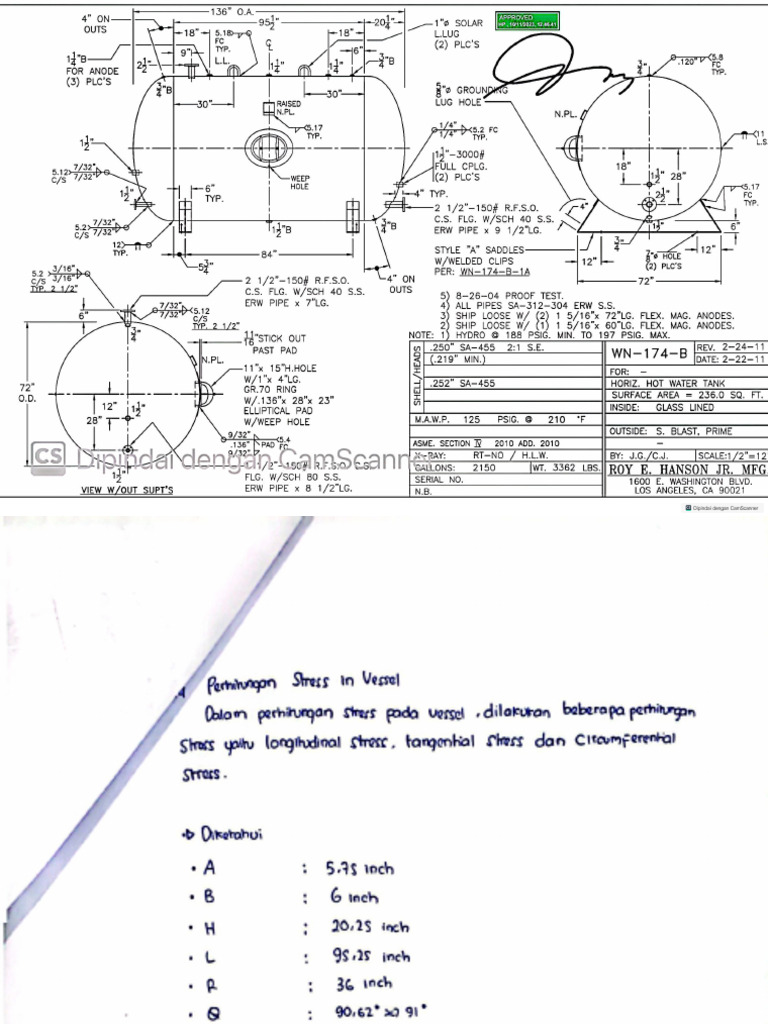 136" O.A.
4" ON
OUTS
95½"
20¼"
18"
5.18
FC
TYP.
L.L.
18"
1"ø SOLAR
L.LUG
(2) PLC'S
APPROVED
1¼"B
FOR ANODE
(3) PLC'S
2½"
9"
1¼"
1¼"
6"
¾"B
¾"B
30"
30"
RAISED
N.PL.
5.17
TYP.
WEEP
HOLE
1½"
5.12
C/S
7/32"
7/32"
1½"
6"
TYP.
5.2
C/S
7/32"
7/32"
12
TYP.
1½"B
1½"B
84"
5¾"
4" ON
OUTS
1/4"
1/4"
5.2 FC
TYP.
1½"-3000#
FULL CPLG.
(2) PLC'S
4" TYP.
2 1/2"-150# R.F.S.O.
C.S. FLG. W/SCH 40 S.S.
ERW PIPE x 9 1/2"LG.
STYLE "A" SADDLES
W/WELDED CLIPS
PER: WN-174-B-1A
⅝"ø GROUNDING
LUG HOLE
N.PL.
¾"
.120"
5.8
FC
TYP.
11
L.S.
18"
1½"
28"
2½"
5.17
FC
TYP.
4"
¾"
6"
12"
⅞"ø HOLE
(2) PLC'S
12"
72"
5.2
C/S
TYP. 2 1/2"
3/16"
3/16"
2 1/2"-150# R.F.S.O.
C.S. FLG. W/SCH 40 S.S.
ERW PIPE x 7"LG.
6"
7/32"
7/32"
5.12
C/S
TYP. 2 1/2"
¾"
11"
16
STICK OUT
PAST PAD
N.PL.
72"
O.D.
12"
1½"
28"
11"x 15"H.HOLE
W/1"x 4"LG.
GR.70 RING
W/.136"x 28"x 23"
ELLIPTICAL PAD
W/WEEP HOLE
9/32"
.136"
9/32"
5.4
PAD FC
1½"
2 1/2"-150# R.F.S.O. C.S.
FLG. W/SCH 80 S.S.
ERW PIPE x 8 1/2"LG.
VIEW W/OUT SUPT'S
CS Dipindai dengan CamScanner
5) 8-26-04 PROOF TEST.
4) ALL PIPES SA-312-304 ERW S.S.
3) SHIP LOOSE W/ (2) 1 5/16"x 72"LG. FLEX. MAG. ANODES.
2) SHIP LOOSE W/ (1) 1 5/16"x 60"LG. FLEX. MAG. ANODES.
NOTE: 1) HYDRO @ 188 PSIG. MIN. TO 197 PSIG. MAX.
SHELL/HEADS
.250" SA-455 2:1 S.E.
(.219" MIN.)
.252" SA-455
M.A.W.P. 125 PSIG. @ 210 °F
ASME. SECTION IV 2010 ADD. 2010
X-RAY: RT-NO / H.L.W.
GALLONS: 2150 WT. 3362 LBS.
SERIAL NO.
N.B.
WN-174-B
REV. 2-24-11
DATE: 2-22-11
FOR: -
HORIZ. HOT WATER TANK
SURFACE AREA = 236.0 SQ. FT.
INSIDE: GLASS LINED
OUTSIDE: S. BLAST, PRIME
-
BY: J.G./C.J. SCALE:1/2"=12
ROY E. HANSON JR. MFG
1600 E. WASHINGTON BLVD.
LOS ANGELES, CA 90021
CS Dipindai dengan CamScanner
Perhitungan Stress in Vessel
Dalam perhitungan stress pada vessel, dilakukan beberapa perhitungan
Stress yaitu longitudinal stress, tangential stress dan Circumferential
Stress.
Diketahui
• A : 5.75 inch
• B : 6 inch
• H : 20,25 inch
• L : 95,25 inch
• R : 36 inch
• Q : 90,62° ≈ 91°